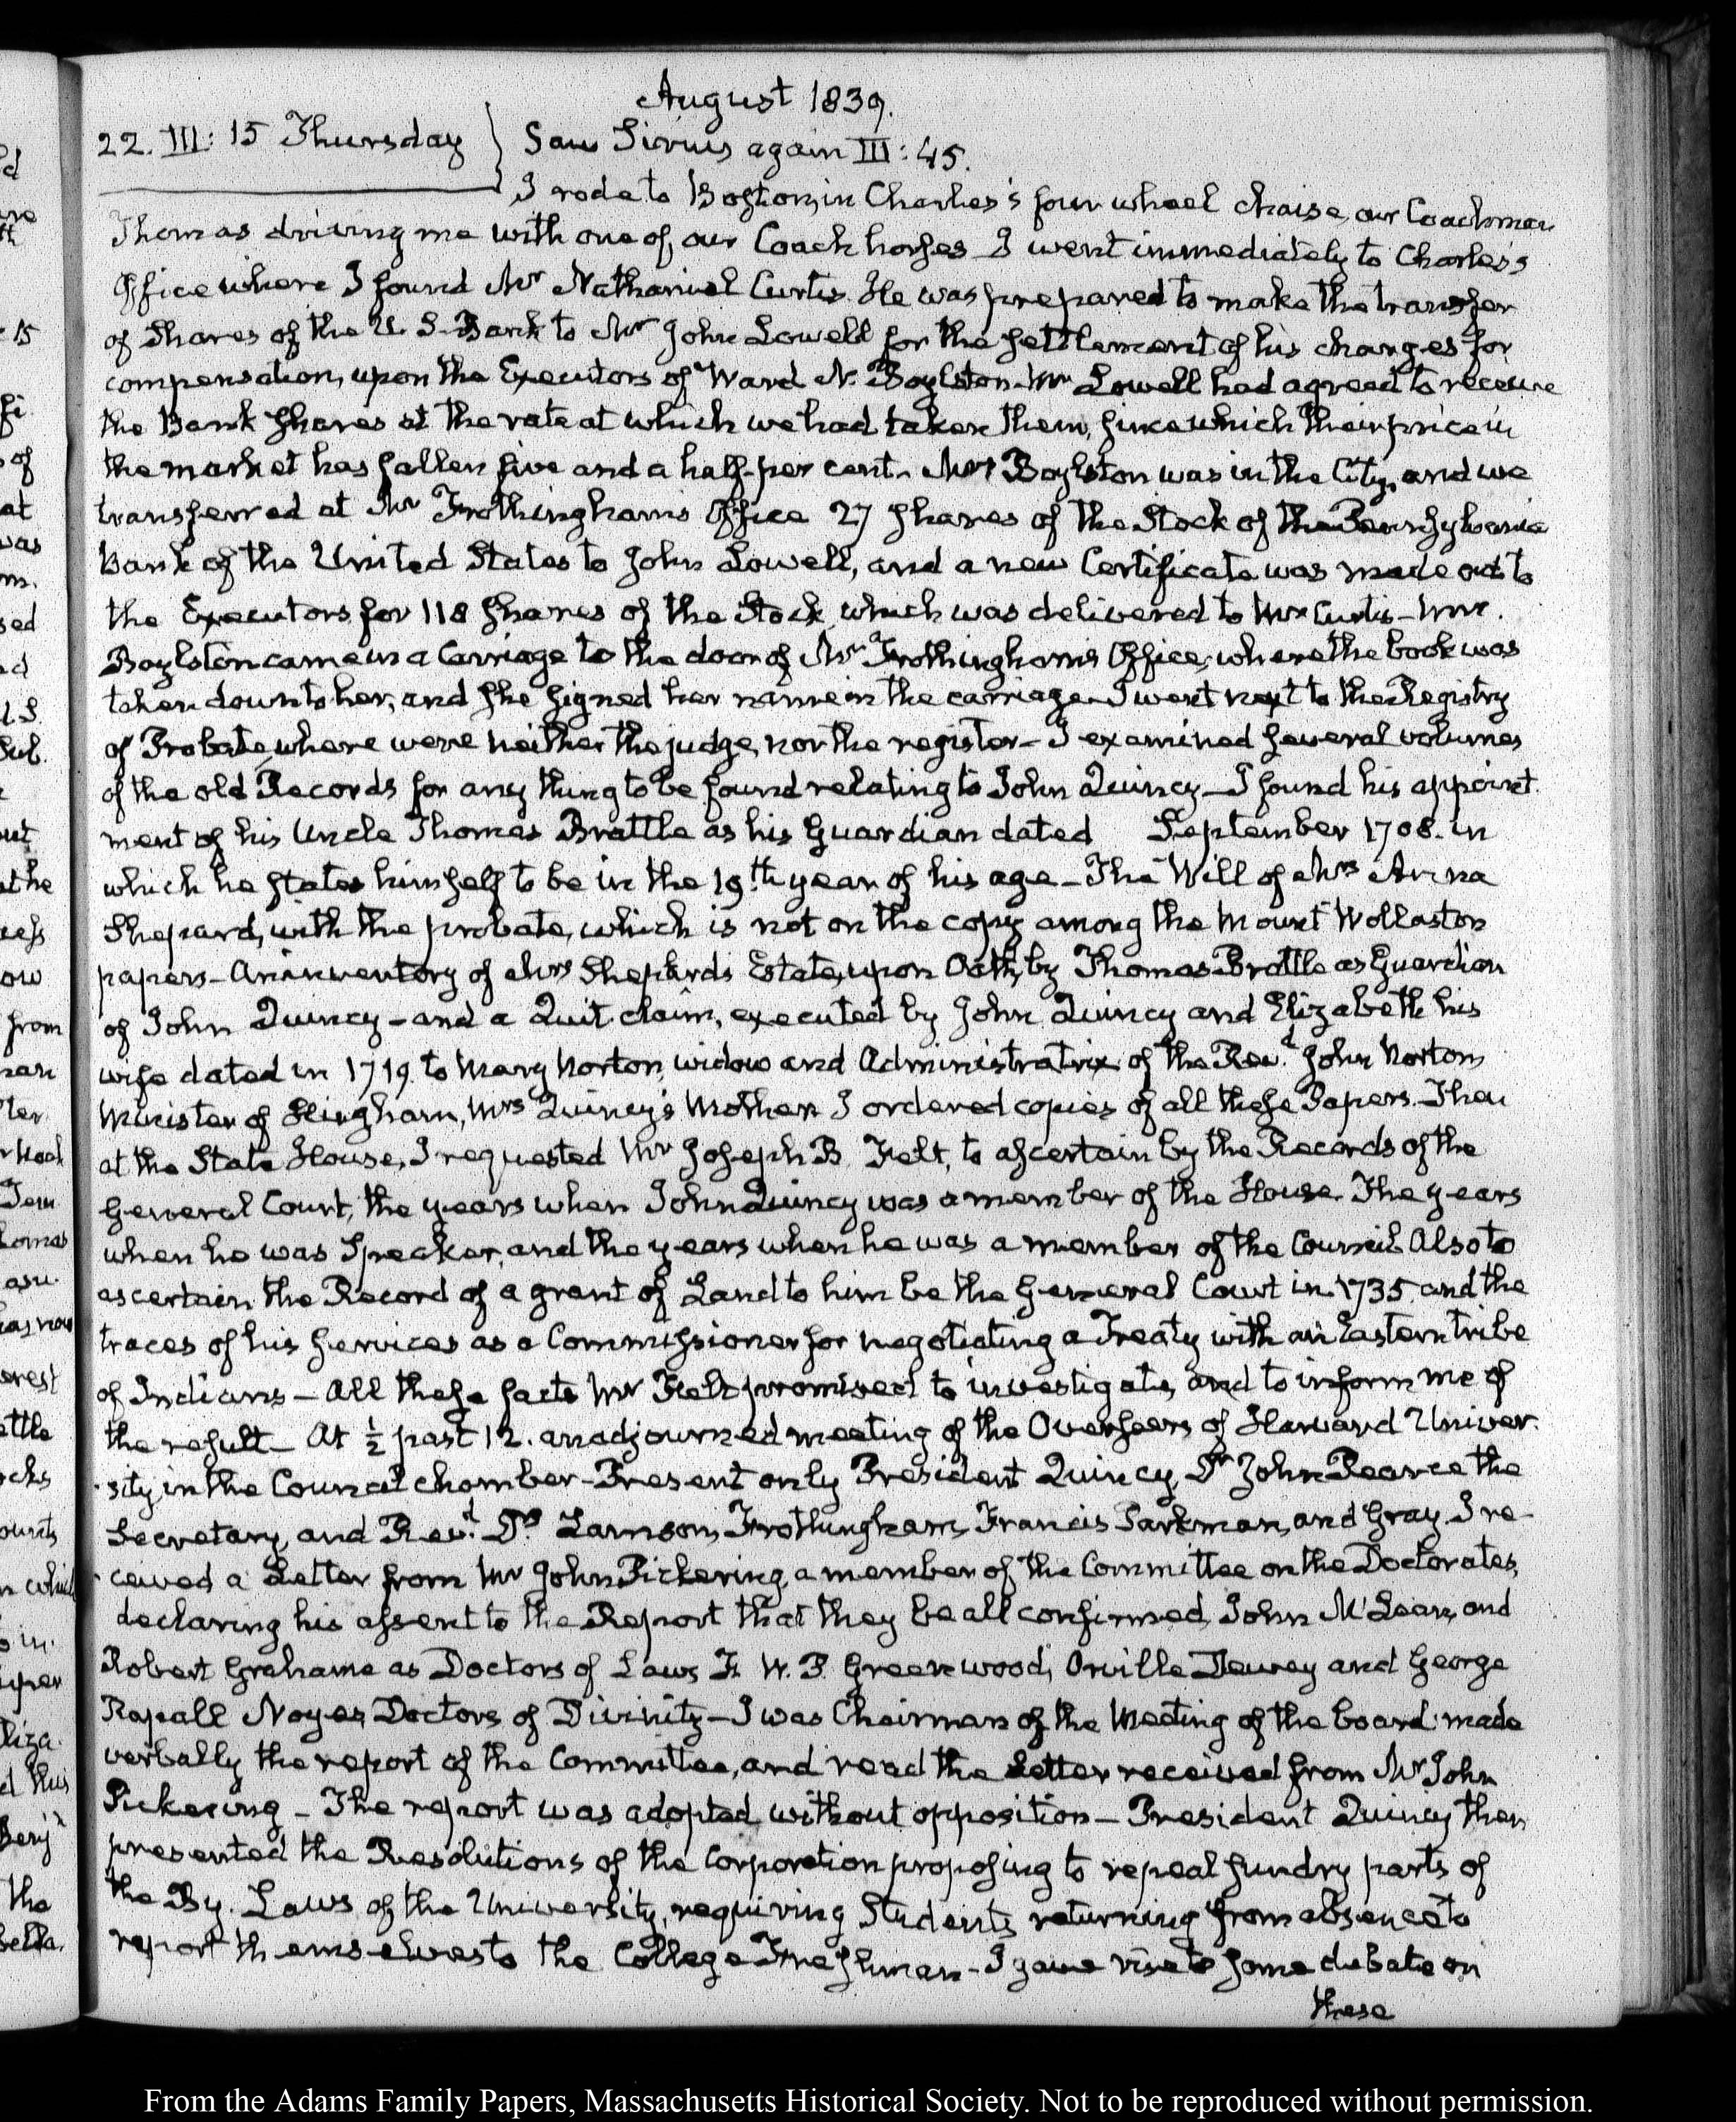 August 1839.
22. III: 15 Thursday } Saw Sirius again III: 45.
I rode to Boston, in Charles's four wheel chaise, our Coachman
Thomas driving me with one of our Coach horses. I went immediately to Charles's
Office where I found Mr Nathaniel Curtis. He was prepared to make the transfer
of Shares of the U. S. Bank to Mr John Lowell for the settlement of his charges for
compensation, upon the Executors of Ward N. Boylston. Mr Lowell had agreed to receive
the Bank shares at the rate at which we had taken them, since which their price in
the market has fallen five and a half per cent. Mrs Boylston was in the City, and we
transferred at Mr Frothingham's Office 27 shares of the Stock of the Pennsylvania
Bank of the United States to John Lowell, and a new Certificate was made out to
the Executors for 118 shares of the Stock, which was delivered to Mr Curtis - Mrs.
Boylston came in a Carriage to the door of Mr Frothingham's Office, where the book was
taken down to her, and she signed her name in the carriage. I went next to the Registry
of Probate, where were neither the judge, nor the register - I examined several volumes
of the old Records for any thing to be found relating to John Quincy - I found his appoint.
ment of his Uncle Thomas Brattle as his Guardian dated September 1708. in
which he states himself to be in the 19th year of his age - The Will of Mrs Anna
Shepard, with the probate, which is not on the copy among the Mount Wollaston
papers - An inventory of Mrs Shepards Estate, upon Oath, by Thomas Brattle as Guardian
of John Quincy - and a Quit. claim, executed by John Quincy and Elizabeth his
wife dated in 1719. to Mary Norton, widow and Administratrix of the Revd. John Norton,
Minister of Hingham, Mrs Quincy's Mother. I ordered copies of all these Papers. Then
at the State House, I requested Mr Joseph B. Felt, to ascertain by the Records of the
General Court, the years when John Quincy was a member of the House. The years
when he was Speaker, and the years when he was a member of the Council. Also to
ascertain the Record of a grant of Land to him be the General Court in 1735 and the
traces of his services as a Commissioner for negotiating a Treaty with an Eastern tribe
of Indians - All these facts Mr Felt promised to investigate, and to inform me of
the result - At ½ past 12. an adjourned meeting of the Overseers of Harvard Univer.
sity, in the Council chamber - Present only President Quincy, Dr John Pearce the
Secretary, and Revd. Drs Lamson, Frothingham, Francis Parkman, and Gray. I re-
ceived a Letter from Mr John Pickering, a member of the Committee on the Doctorates,
declaring his assent to the Report that they be all confirmed, John McLean, and
Robert Grahame as Doctors of Laws, F. W. P. Greenwood, Orville Dewey and George
Rapall Noyes, Doctors of Divinity - I was Chairman of the Meeting of the board. made
verbally the report of the Committee, and read the Letter received from Mr John
Pickering - The report was adopted without opposition - President Quincy then
presented the Resolutions of the Corporation proposing to repeal sundry parts of
the By. Laws of the University, requiring Students returning from absence to
report themselves to the College Freshman - I gave rise to some debate on
these
From the Adams Family Papers, Massachusetts Historical Society. Not to be reproduced without permission.